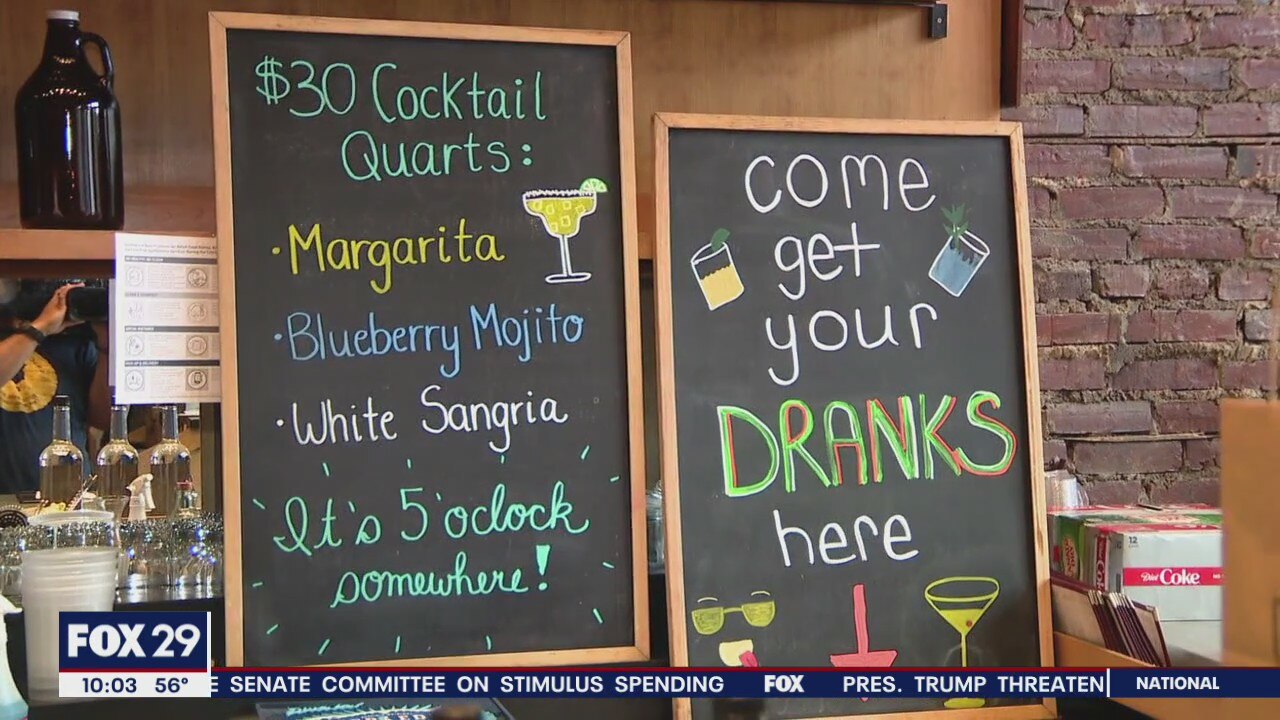 $30 Cocktail
Quarts:
· Margarita
· Blueberry Mojito
· White Sangria
It's 5 o'clock
somewhere!
come
get
your
DRANKS
here
12
Diet Coke
FOX 29
10:03 56°
E SENATE COMMITTEE ON STIMULUS SPENDING FOX PRES. TRUMP THREATEN
NATIONAL